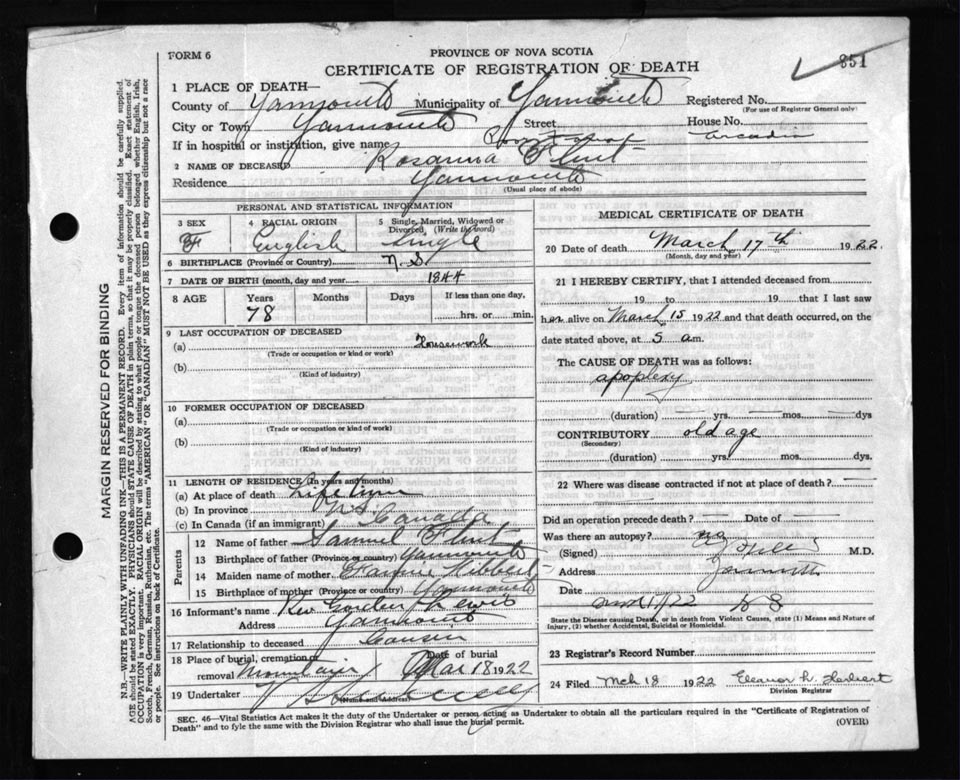 FORM 6
PROVINCE OF NOVA SCOTIA
CERTIFICATE OF REGISTRATION OF DEATH
851
1 PLACE OF DEATH—
County of Yarmouth Municipality of Yarmouth Registered No.
(For use of Registrar General only)
City or Town Yarmouth Street House No.
If in hospital or institution, give name Arcadia
2 NAME OF DECEASED Rosanna Flint
Residence Yarmouth
(Usual place of abode)
PERSONAL AND STATISTICAL INFORMATION
3 SEX F
4 RACIAL ORIGIN English
5 Single, Married, Widowed or Divorced, (Write the word) Single
6 BIRTHPLACE (Province or Country) N.S
7 DATE OF BIRTH (month, day and year) 1844
8 AGE Years Months Days If less than one day,
78 hrs. or min.
9 LAST OCCUPATION OF DECEASED
(a) Housework
(Trade or occupation or kind or work)
(b)
(Kind of industry)
10 FORMER OCCUPATION OF DECEASED
(a)
(Trade or occupation or kind or work)
(b)
(Kind of industry)
11 LENGTH OF RESIDENCE (In years and months)
(a) At place of death Life time
(b) In province N.S.
(c) In Canada (if an immigrant) Canada
Parents
12 Name of father Samuel Flint
13 Birthplace of father (Province or country) Yarmouth
14 Maiden name of mother
15 Birthplace of mother (Province or country) Yarmouth
16 Informant's name Rev Lewis
Address Yarmouth
17 Relationship to deceased Cousin
18 Place of burial, cremation or removal Mountain Date of burial Mar 18 1922
19 Undertaker
(Name and Address)
MEDICAL CERTIFICATE OF DEATH
20 Date of death March 17th 1922.
(Month, day and year)
21 I HEREBY CERTIFY, that I attended deceased from
19 to 19 that I last saw
her alive on March 15 1922 and that death occurred, on
date stated above, at 5 am.
The CAUSE OF DEATH was as follows:
apoplexy
(duration) — yrs. — mos. — dys
CONTRIBUTORY old age
(Secondary)
(duration) yrs. mos. dys.
22 Where was disease contracted if not at place of death? —
Did an operation precede death — Date of —
Was there an autopsy? no
(Signed) M.D.
Address Yarmouth
Date N S
State the Disease causing Death, or in death from Violent Causes, state (1) Means and Nature of Injury, (2) whether Accidental, Suicidal or Homicidal.
23 Registrar's Record Number
24 Filed Mch 18 1922 Eleanor h. Harbert
Division Registrar
SEC. 46—Vital Statistics Act makes it the duty of the Undertaker or person acting as Undertaker to obtain all the particulars required in the "Certificate of Registration of
Death" and to fyle the same with the Division Registrar who shall issue the burial permit.
(OVER)
MARGIN RESERVED FOR BINDING
N.B.—WRITE PLAINLY WITH UNFADING INK—THIS IS A PERMANENT RECORD. Every item of information should be carefully supplied.
AGE should be stated EXACTLY. PHYSICIANS should STATE CAUSE OF DEATH in plain terms, so that it may be properly classified. Exact statement of
OCCUPATION is very important. RACIAL ORIGIN will be described by stating to what people or tongue the deceased person belonged whether English, Irish,
Scotch, French, German, Russian, Ruthenian, etc. The terms "AMERICAN" OR "CANADIAN" MUST NOT BE USED as they express citizenship but not a race
or people. See instructions on back of Certificate.